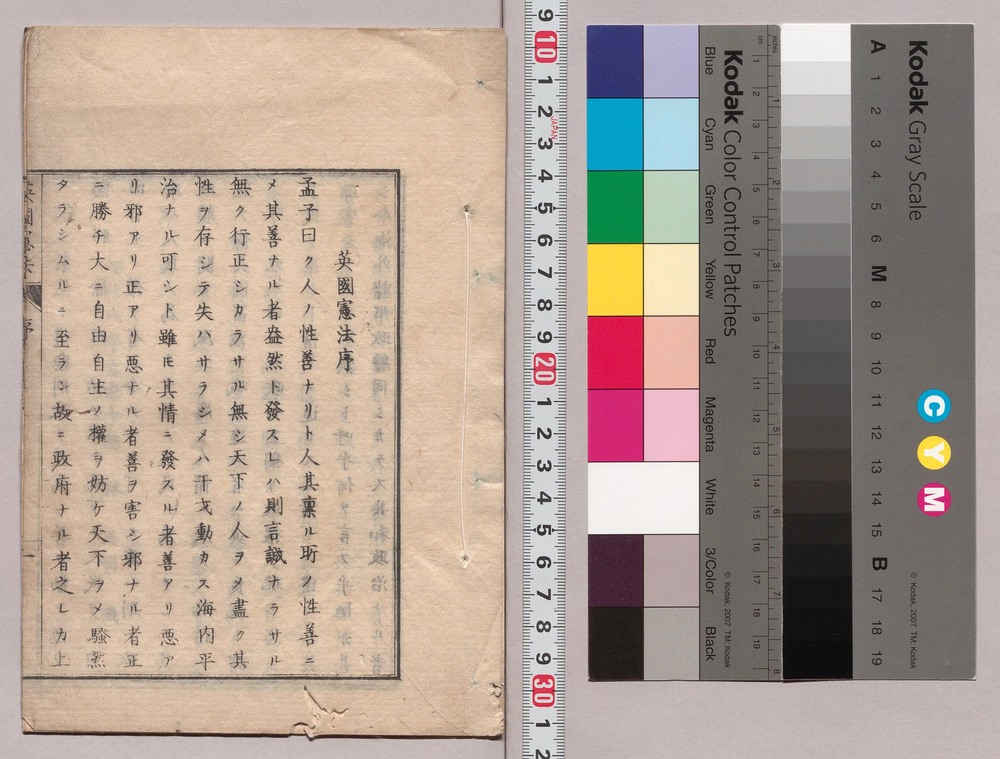 英國憲法序
孟子曰ク人ノ性善ナリト人其稟ル所ノ性善ニ
メ其善ナル者盎然ト發スレハ則言誠ナラサル
無ク行正シカラサル無シ天下ノ人ヲメ盡ク其
性ヲ存シテ失ハサラシメハ干戈動カス海内平
治ナル可シト雖モ其情ニ發スル者善アリ悪ア
リ邪アリ正アリ悪ナル者善ヲ害シ邪ナル者正
ニ勝チ大ニ自由自主ノ權ヲ妨ケ天下ヲメ騒然
タラシムルニ至ラン故ニ政府ナル者之レカ上
英國憲法
序
一
9 10 1 2 3 4 5 6 7 8 9 20 1 2 3 4 5 6 7 8 9 30 1 2
JAPAN
Kodak Color Control Patches
Blue Cyan Green Yellow Red Magenta White 3/Color Black
cm 1 2 3 4 5 6 7 8 9 10 11 12 13 14 15 16 17 18 19
inches 1 2 3 4 5 6 7 8
© Kodak, 2007 TM: Kodak
Kodak Gray Scale
A 1 2 3 4 5 6 M 8 9 10 11 12 13 14 15 B 17 18 19
C Y M
© Kodak, 2007 TM: Kodak